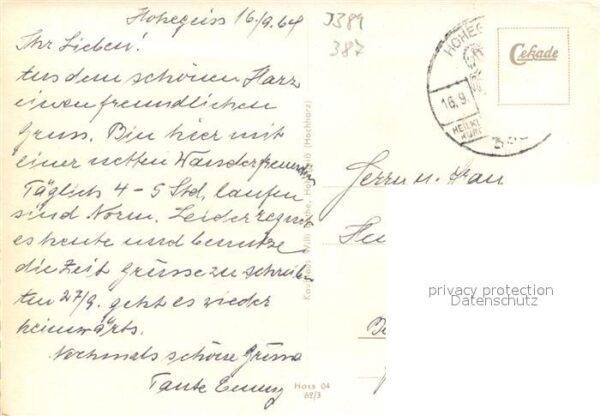 Hohegeiss 16/9.64
J389
387
Ihr Lieben!
Aus dem schönen Harz
einen freundlichen
Gruss. Bin hier mit
einer netten Wanderfreundin
Täglich 4-5 Std. laufen
sind Norm. Leider regnet
es heute und benutze
die Zeit Grüsse zu schreiben
Am 27/9. geht es wieder
heimwärts.
Nochmals schöne Grüsse
Tante
HOHEG
16.9.
HEILKL
Cekade
Herrn u. Frau
privacy protection
Datenschutz
Kaufhaus Willi (Hochharz)
Hoss 04
62/3